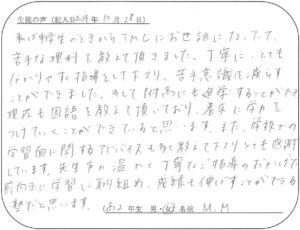 生徒の声(記入日2024年10月28日)
私は中学生のときからTMCにお世話になっていて、
苦手な理科を教えて頂きました。丁寧に、とても
わかりやすく指導して下さり、苦手意識を減らす
ことができました。そして附高にも進学することができ
現在も国語を教えて頂いており、着実に学力を
つけていくことができていると思います。また、学校での
学習面に関するアドバイスも多く教えて下さりとても感謝
しています。先生方の温かく丁寧なご指導のおかげで
前向きに学習に取り組め、成績も伸ばすことができる
塾だと思います。
(高2年生 男・女)名前 M.M